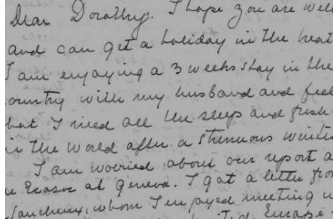 Dear Dorothy. I hope you are well
and can get a holiday in the heat
I am enjoying a 3 weeks stay in the
ountry with my husband and feel
hat I need all the sleep and fresh
in the world after a strenuous winter
I am worried about our report a
at Geneva. I got a letter from
whom I enjoyed meeting